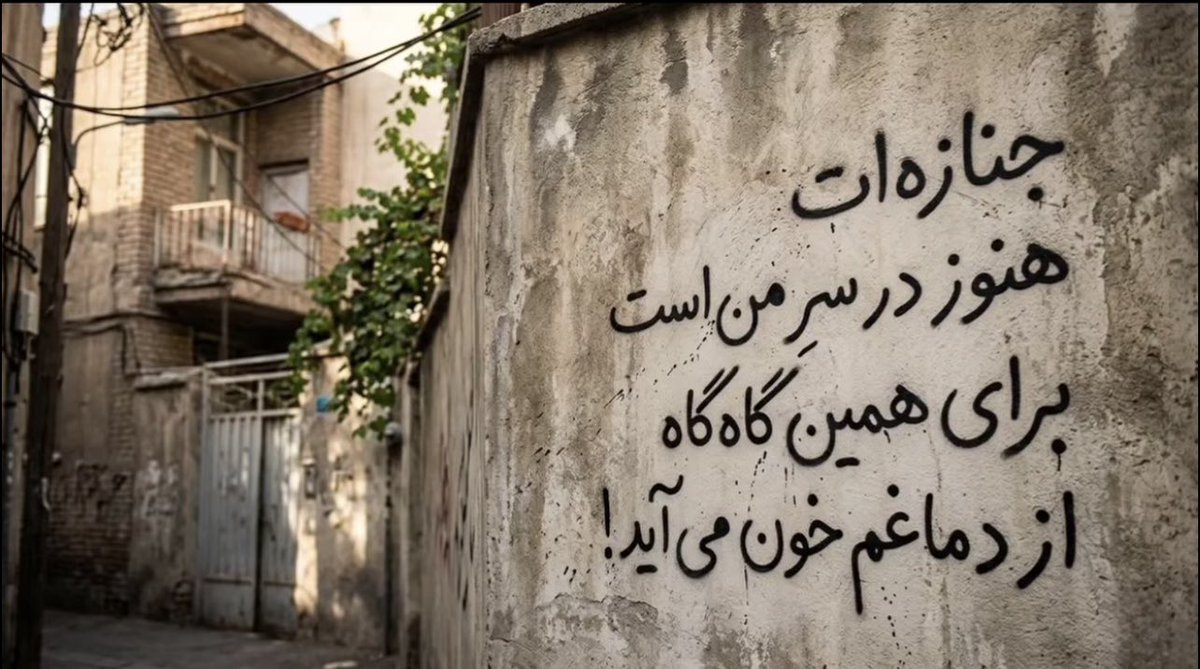 جنازه‌ات
هنوز در سرِ من است
برای همین گاه گاه
از دماغم خون می‌آید!